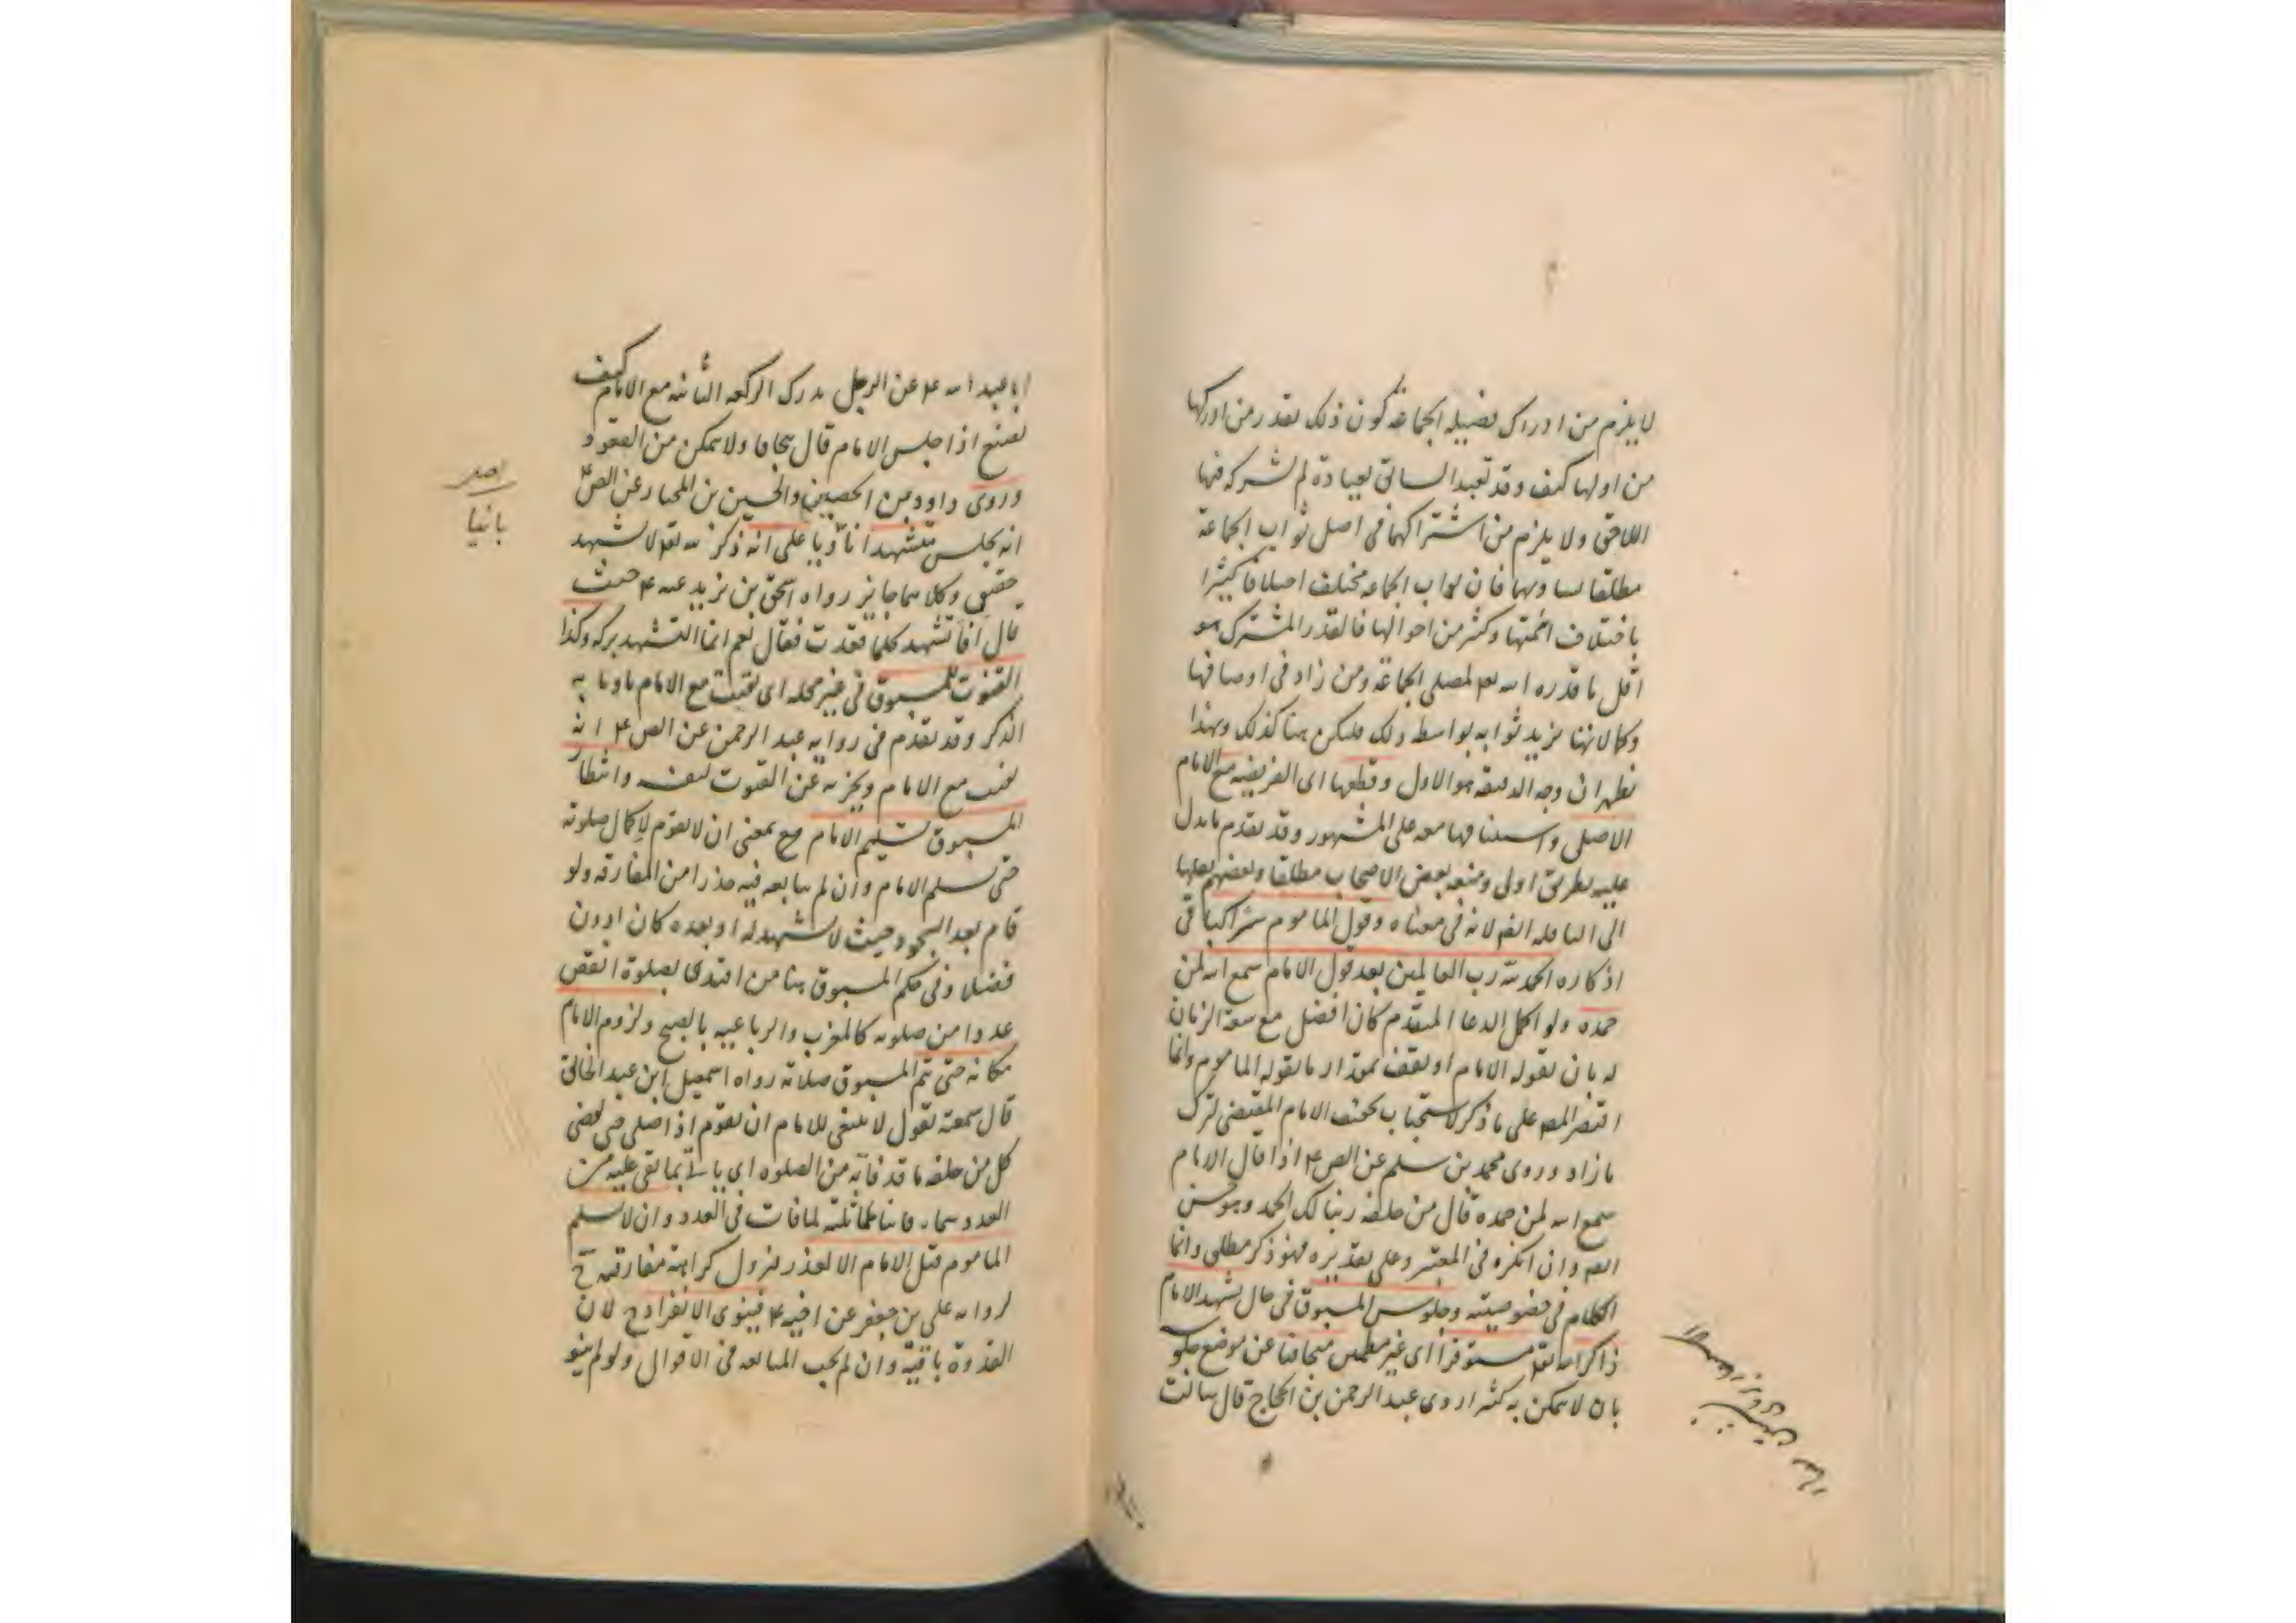 لا يلزم من ادراك فضيلة الجماعة كون ذلك بقدر من ادركها
من اولها كيف وقد تعبد السابق بعبادة لم يشركه فيها
اللاحق ولا يلزم من اشتراكهما في اصل ثواب الجماعة
مطلقا تساويهما فان ثواب الجماعة مختلف اختلافا كثيرا
باختلاف ائمتها وكثير من احوالها فالقدر المشترك هو
اقل ما قدره الله تعه لمصلى الجماعة ومن زاد في اوصافها
وكمالاتها يزيد ثوابه بواسطة ذلك فليكن هنا كذلك وبهذا
يظهر ان وجه الدقيقة هو الاول وقطعها اى الفريضة مع الامام
الاصلى واستينافها معه على المشهور وقد تقدم ما يدل
عليه بطريق اولى ومنعه بعض الاصحاب مطلقا وبعضهم نقلها
الى النافلة ايضا لانه في معناه وقول الماموم سرا كباقي
اذكاره الحمد لله رب العالمين بعد قول الامام سمع الله لمن
حمده ولو اكمل الدعا المتقدم كان افضل مع سعة الزمان
له بان يقوله الامام او يقف بمقدار ما يقوله الماموم وانما
اقتصر المصه على ما ذكر لاستحباب تخفيف الامام المقتضى لترك
ما زاد وروى محمد بن مسلم عن الص ع اذا قال الامام
سمع الله لمن حمده قال من خلفه ربنا لك الحمد وهو حسن
ايضا وان انكره في المعتبر وعلى تقديره فهو ذكر مطلق وانما
الكلام في خصوصيته وجلوس المسبوق في حال تشهد الامام
ذاكرا لله تعه مستوفزا اى غير مطمئن متجافيا عن موضع جلوسه
بان لا يمكن به كثيرا روى عبد الرحمن بن الحجاج قال سالت
ابا عبد الله ع عن الرجل يدرك الركعة الثانية مع الامام كيف
يصنع اذا جلس الامام قال يتجافا ولا يمكن من القعود
وروى داود بن الحصين والحسين بن المختار عن الص ع
انه يجلس متشهدا ناويا على انه ذكر لله تعه لا تشهد
حقيقى وكلاهما جايز رواه اسحق بن يزيد عنه ع حيث
قال افاتشهد كلما قعدت فقال نعم انما التشهد بركة وكذا
القنوت للمسبوق في غير محله اى يقنت مع الامام ناويا به
الذكر وقد تقدم في رواية عبد الرحمن عن الص ع انه
يقنت مع الامام ويجزيه عن القنوت لنفسه وانتظار
المسبوق تسليم الامام مع بمعنى ان لا يقوم لاكمال صلوته
حتى يسلم الامام وان لم يتابعه فيه حذرا من المفارقة ولو
قام بعد السجود حيث لا تشهد له او بعده كان ادون
فضلا وفي حكم المسبوق هنا من اقتدى بصلوة انقص
عددا من صلوته كالمغرب والرباعية بالصبح ولزوم الامام
مكانه حتى يتم المسبوق صلاته رواه اسمعيل ابن عبد الخالق
قال سمعته يقول لا ينبغى للامام ان يقوم اذا صلى حتى يقضى
كل من خلفه ما قد فاته من الصلوه اى ياتي بما بقى عليه من
العدد سماه فائتا لمماثلته لما فات في العدد وان لا يسلم
الماموم قبل الامام الا لعذر فتزول كراهة مفارقته ح
لرواية على بن جعفر عن اخيه ع فينوى الانفراد ح لان
القدوة باقية وان لم يجب المتابعة في الاقوال ولو لم ينو